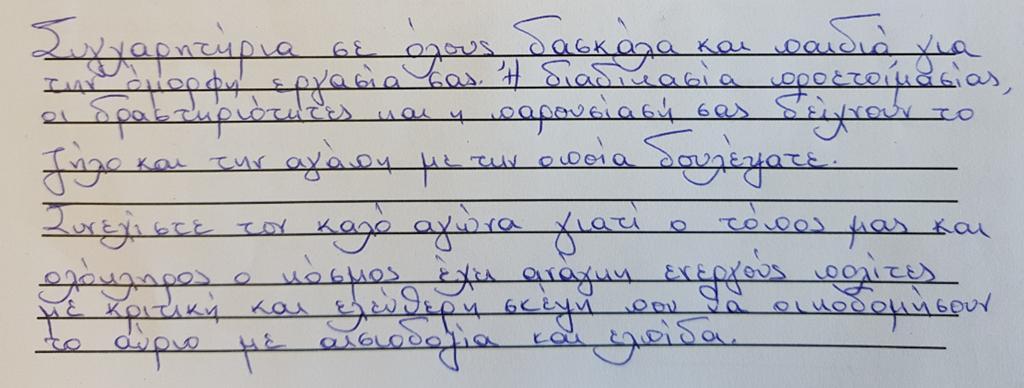 Συγχαρητήρια σε όλους δασκάλα και παιδιά για
την όμορφη εργασία σας. Η διαδικασία προετοιμασίας,
οι δραστηριότητες και η παρουσίασή σας δείχνουν το
ζήλο και την αγάπη με την οποία δουλέψατε.
Συνεχίστε τον καλό αγώνα γιατί ο τόπος μας και
ολόκληρος ο κόσμος έχει ανάγκη ενεργούς πολίτες
με κριτική και ελεύθερη σκέψη που θα οικοδομήσουν
το αύριο με αισιοδοξία και ελπίδα.